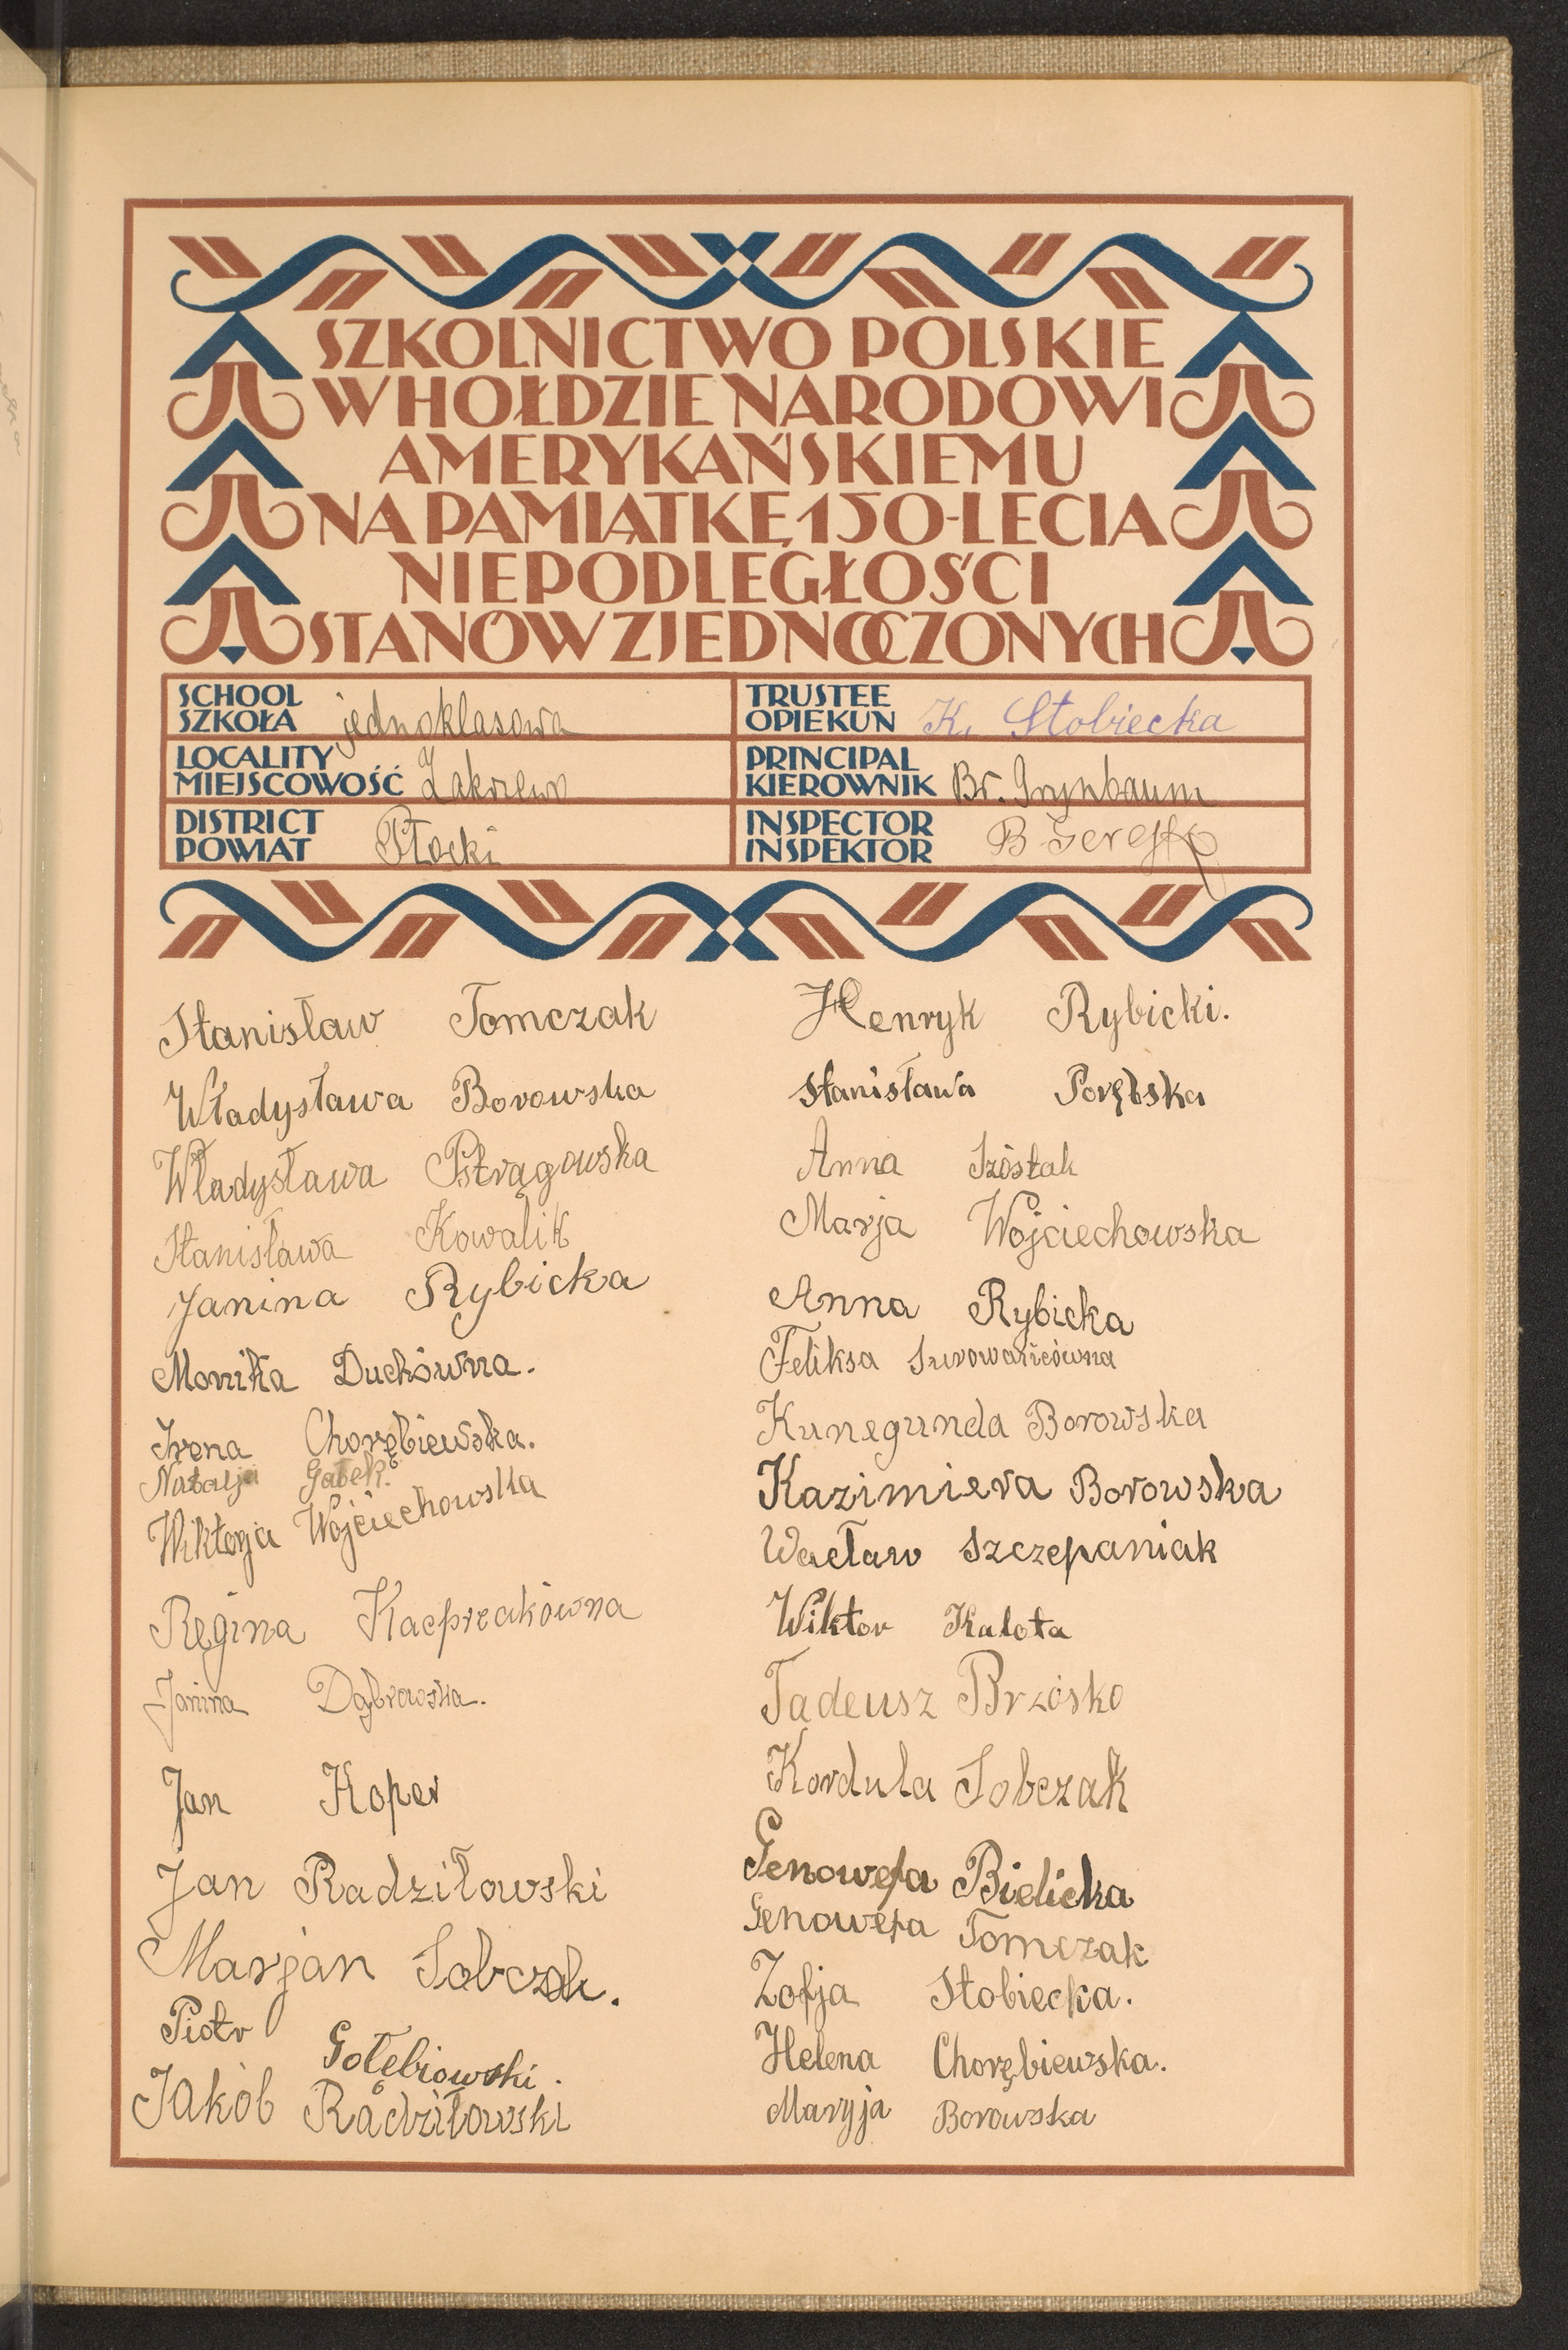 SZKOLNICTWO POLSKIE
W HOŁDZIE NARODOWI
AMERYKAŃSKIEMU
NA PAMIĄTKĘ 150-LECIA
NIEPODLEGŁOŚCI
STANÓW ZJEDNOCZONYCH
SCHOOL
SZKOŁA jednoklasowa
TRUSTEE
OPIEKUN K. Stobiecka
LOCALITY
MIEJSCOWOŚĆ Zakrzewo
PRINCIPAL
KIEROWNIK Br. Grynbaum
DISTRICT
POWIAT Płocki
INSPECTOR
INSPEKTOR B
Stanisław Tomczak
Władysława Borowska
Władysława Pstrągowska
Stanisława Kowalik
Janina Rybicka
Monika Duchówna.
Irena Chorębiewska.
Natalja Gałek.
Wiktorja Wojciechowska
Regina Kacprzakówna
Janina Dąbrowska.
Jan Koper
Jan Radziłowski
Marjan Sobczak.
Piotr Gołębiowski.
Jakób Radziłowski
Henryk Rybicki.
Stanisława Porębska
Anna Szóstak
Marja Wojciechowska
Anna Rybicka
Feliksa
Kunegunda Borowska
Kazimiera Borowska
Wacław Szczepaniak
Wiktor Kulota
Tadeusz Brzósko
Kordula Sobczak
Genowefa Bielicka
Genowefa Tomczak
Zofja Stobiecka.
Helena Chorębiewska.
Maryja Borowska